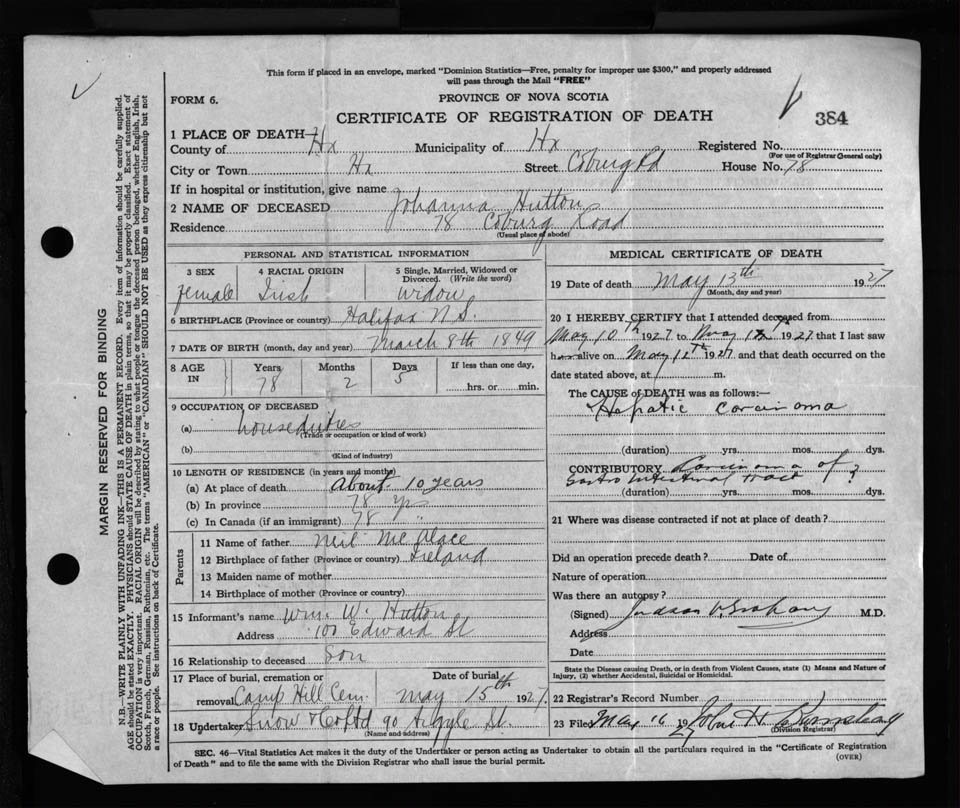 This form if placed in an envelope, marked "Dominion Statistics—Free, penalty for improper use $300," and properly addressed
will pass through the Mail "FREE"
FORM 6.
PROVINCE OF NOVA SCOTIA
CERTIFICATE OF REGISTRATION OF DEATH
384
1 PLACE OF DEATH—
County of Hx Municipality of Hx Registered No.
(For use of Registrar General only)
City or Town Hx Street Coburg Rd House No. 78
If in hospital or institution, give name
2 NAME OF DECEASED Johanna Hutton
Residence 78 Coburg Road
(Usual place of abode)
PERSONAL AND STATISTICAL INFORMATION
3 SEX 4 RACIAL ORIGIN 5 Single, Married, Widowed or
Divorced. (Write the word)
female Irish Widow
6 BIRTHPLACE (Province or country) Halifax N.S.
7 DATE OF BIRTH (month, day and year) March 8th 1849
8 AGE IN Years Months Days If less than one day,
78 2 5 hrs. or min.
9 OCCUPATION OF DECEASED
(a) house duties
(Trade or occupation or kind of work)
(b)
(Kind of industry)
10 LENGTH OF RESIDENCE (in years and months)
(a) At place of death About 10 years
(b) In province 78 yrs
(c) In Canada (if an immigrant) 78 "
Parents
11 Name of father Neil
12 Birthplace of father (Province or country) Ireland
13 Maiden name of mother
14 Birthplace of mother (Province or country)
15 Informant's name Wm. W. Hutton
Address Edward St
16 Relationship to deceased Son
17 Place of burial, cremation or Date of burial
removal Camp Hill Cem. May 15th 1927.
18 Undertaker Snow & Co Ltd 90 Argyle St.
(Name and address)
MEDICAL CERTIFICATE OF DEATH
19 Date of death May 13th 1927
(Month, day and year)
20 I HEREBY CERTIFY that I attended deceased from
May 10th 1927 to May 1927 that I last saw
h alive on May 12th 1927 and that death occurred on the
date stated above, at m.
The CAUSE of DEATH was as follows:—
Hepatic carcinoma
(duration) yrs. mos. dys.
CONTRIBUTORY Carcinoma of
Gastro Intestinal Tract ?
(duration) yrs. mos. dys.
21 Where was disease contracted if not at place of death?
Did an operation precede death? Date of
Nature of operation
Was there an autopsy?
(Signed) Judson V. Graham M.D.
Address
Date
State the Disease causing Death, or in death from Violent Causes, state (1) Means and Nature of
Injury, (2) whether Accidental, Suicidal or Homicidal.
22 Registrar's Record Number
23 Filed May 16 1927 John H.
(Division Registrar)
SEC. 46—Vital Statistics Act makes it the duty of the Undertaker or person acting as Undertaker to obtain all the particulars required in the "Certificate of Registration
of Death" and to file the same with the Division Registrar who shall issue the burial permit.
(OVER)
MARGIN RESERVED FOR BINDING
N.B.—WRITE PLAINLY WITH UNFADING INK—THIS IS A PERMANENT RECORD. Every item of information should be carefully supplied.
AGE should be stated EXACTLY. PHYSICIANS should STATE CAUSE OF DEATH in plain terms, so that it may be properly classified. Exact statement of
OCCUPATION is very important. RACIAL ORIGIN will be described by stating to what people or tongue the deceased person belonged, whether English, Irish,
Scotch, French, German, Russian, Ruthenian, etc. The terms "AMERICAN" or "CANADIAN" SHOULD NOT BE USED as they express citizenship but not
a race or people. See instructions on back of Certificate.